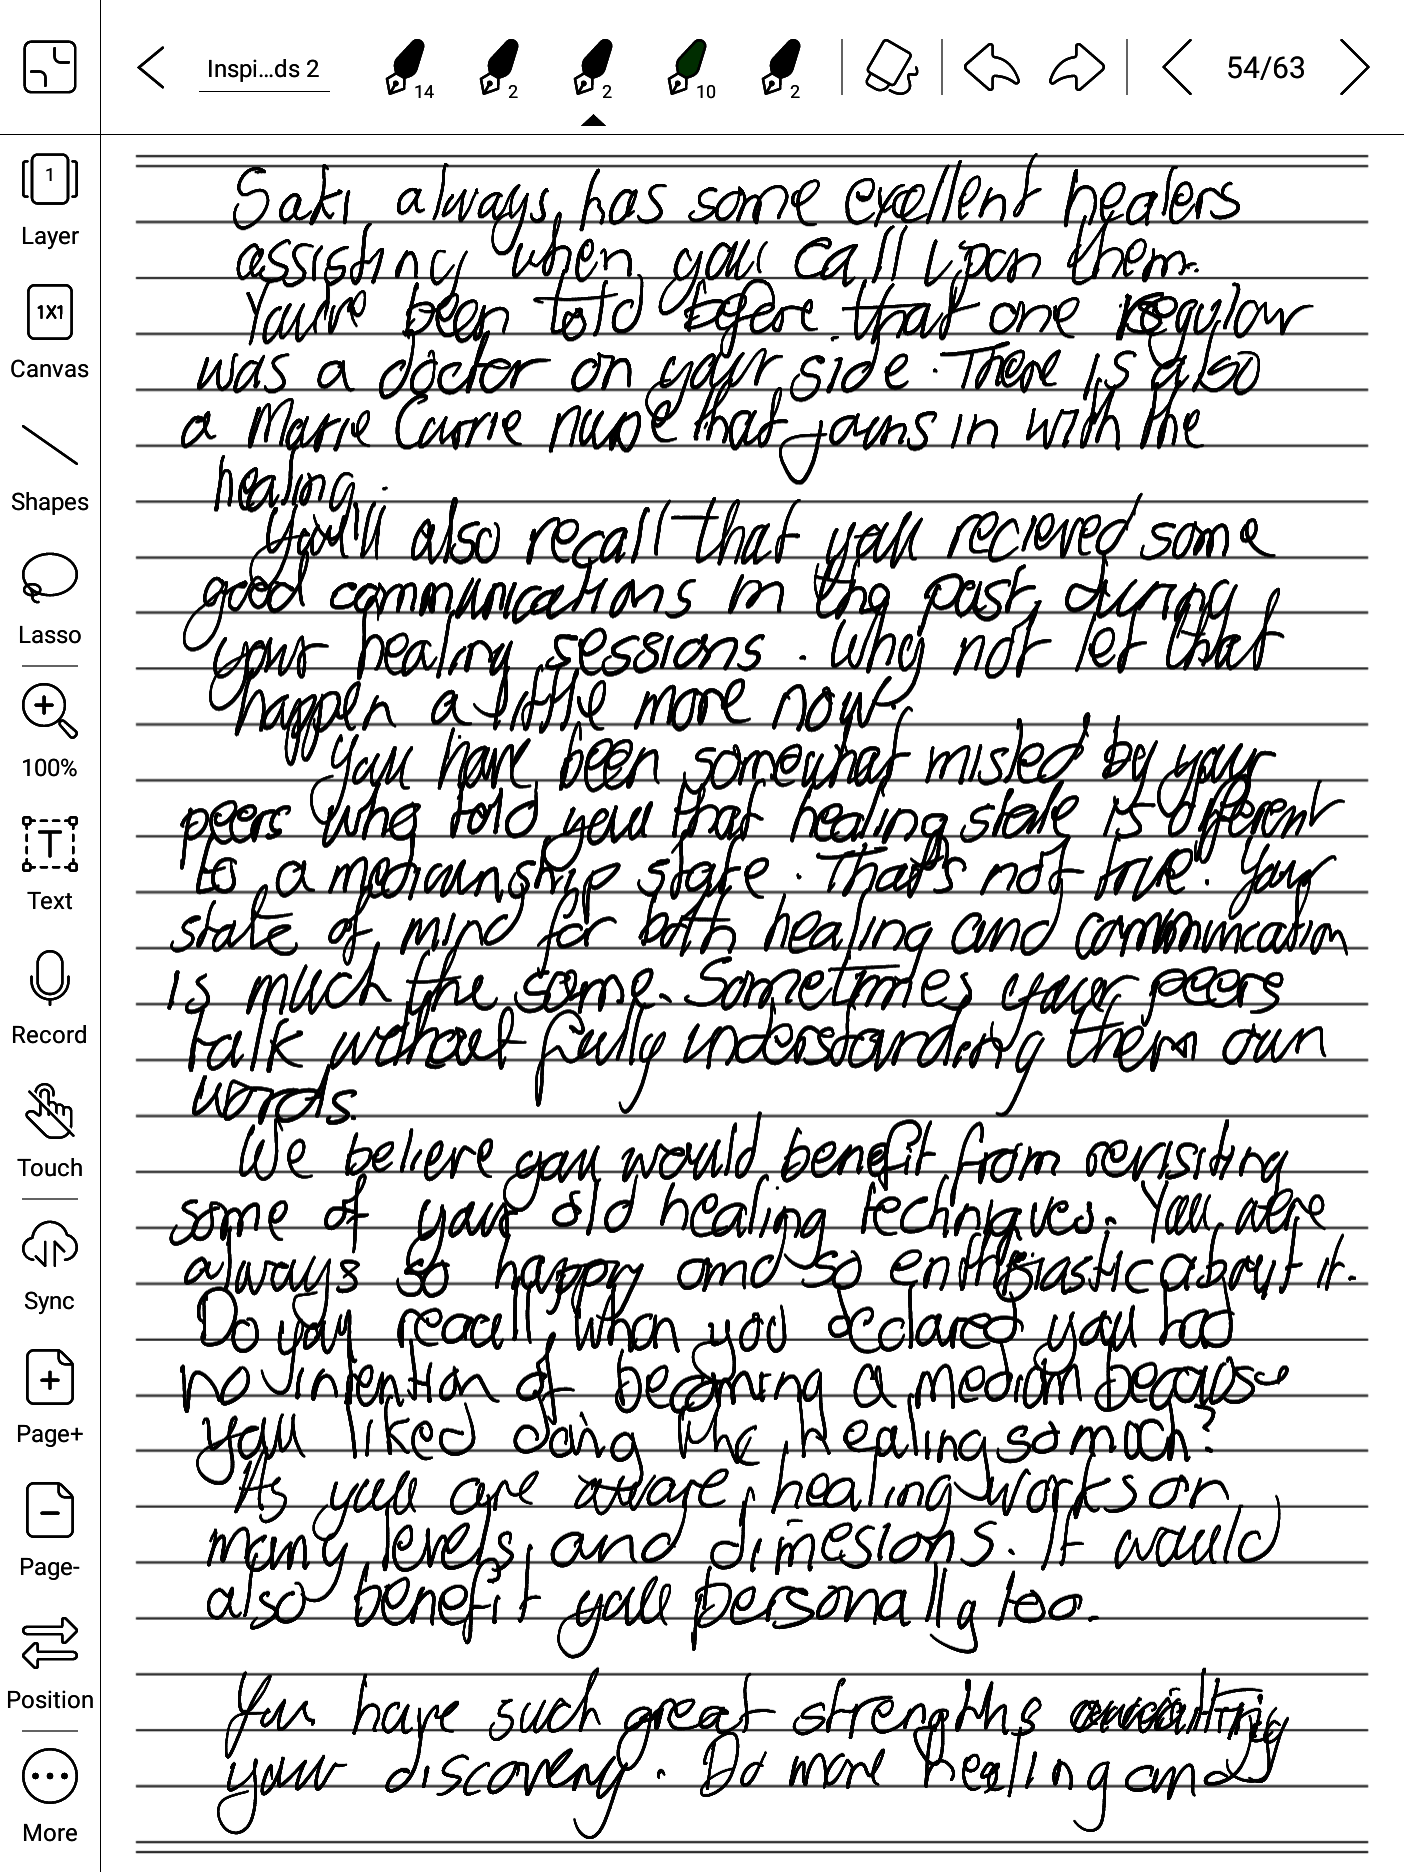 Inspi...ds 2
14
2
2
10
2
54/63
1
Layer
1X1
Canvas
Shapes
Lasso
100%
T
Text
Record
Touch
Sync
Page+
Page-
Position
More
Saki always has some excellent healers
assisting when you call upon them.
You've been told before that one regular
was a doctor on your side. There is also
a Marie Currie nurse that joins in with the
healing.
You'll also recall that you recieved some
good communications in the past during
your healing sessions. Why not let that
happen a little more now.
You have been somewhat misled by your
peers who told you that healing state is different
to a mediumship state. That's not true. Your
state of mind for both healing and communication
is much the same. Sometimes your peers
talk without fully understanding their own
words.
We believe you would benefit from revisiting
some of your old healing techniques. You were
always so happy and so enthusiastic about it.
Do you recall when you declared you had
no intention of becoming a medium because
you liked doing the healing so much?
As you are aware, healing works on
many levels, and dimesions. It would
also benefit you personally too.
You have such great strengths awaiting
your discovery. Do more healing and